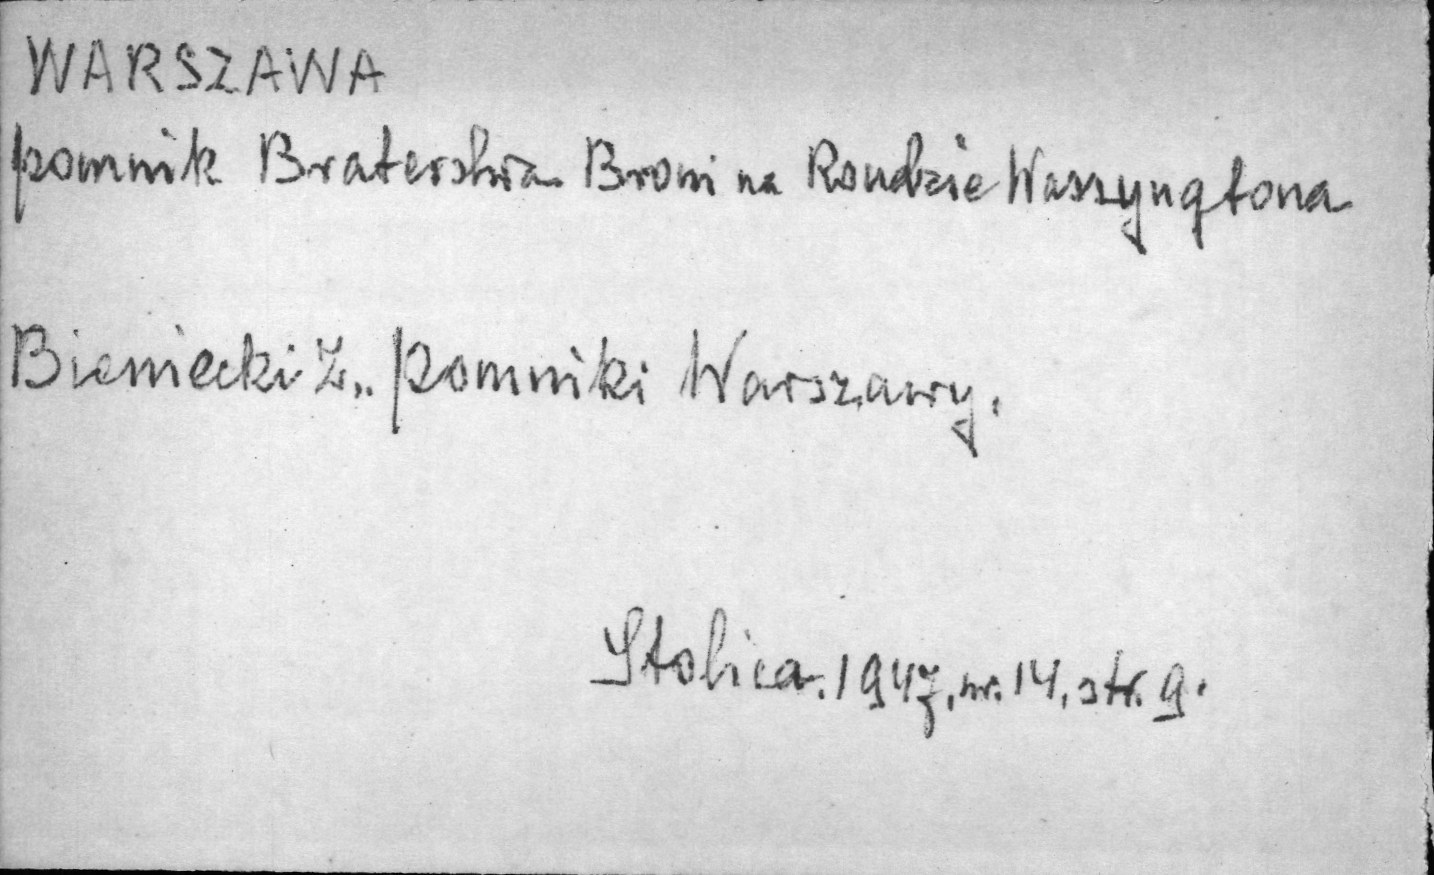 WARSZAWA
pomnik Braterstwa Broni na Rondzie Waszyngtona
Bieniecki Z., pomniki Warszawy.
Stolica. 1947, nr. 14, str. 9.